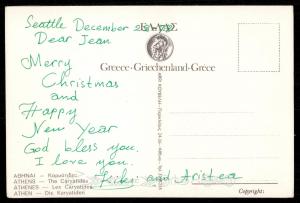 Seattle December
Dear Jean
Merry
Christmas
and
Happy
New Year
God bless you.
I love you.
and Aristea
Greece-Griechenland-Grèce
ΑΘΗΝΑΙ — Καρυάτιδες
ATHENS — The Caryatides
ATHENES — Les Caryatides
ATHEN — Die Karyatiden
Copyright: